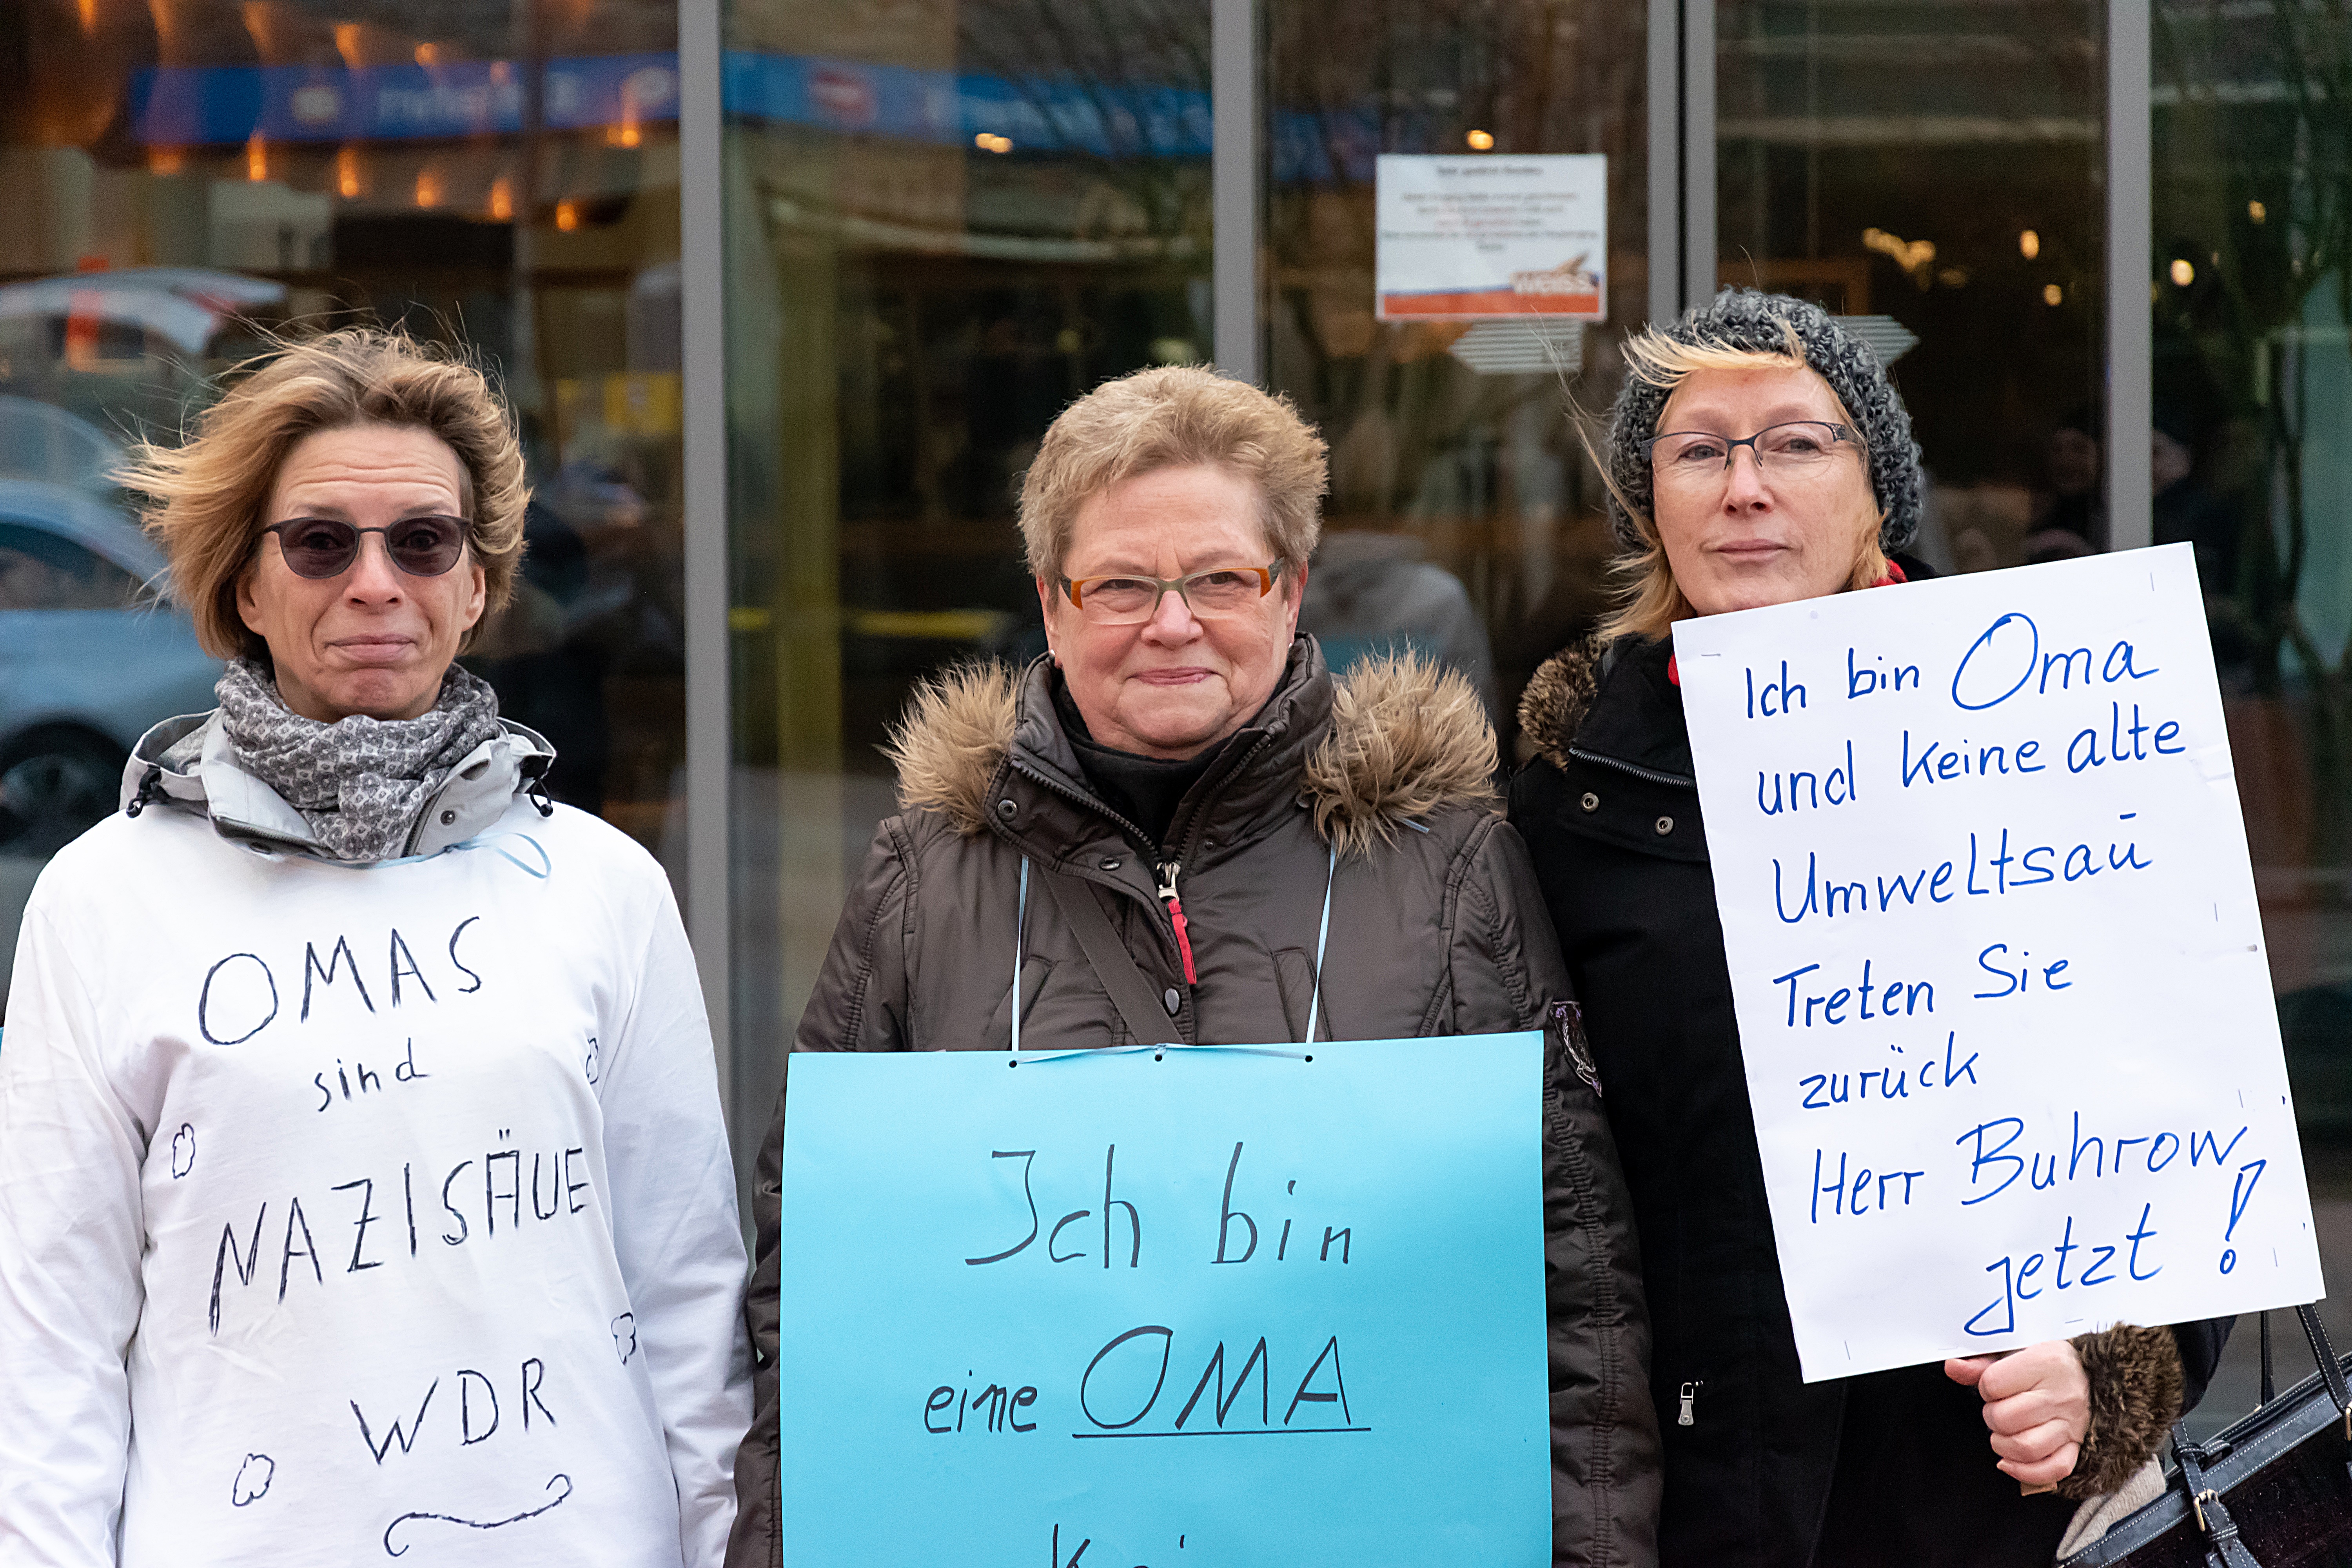 OMAS
sind
NAZISÄUE
WDR
Ich bin
eine OMA
Ich bin Oma
und keine alte
Umweltsau
Treten Sie
zurück
Herr Buhrow
jetzt !
weiss